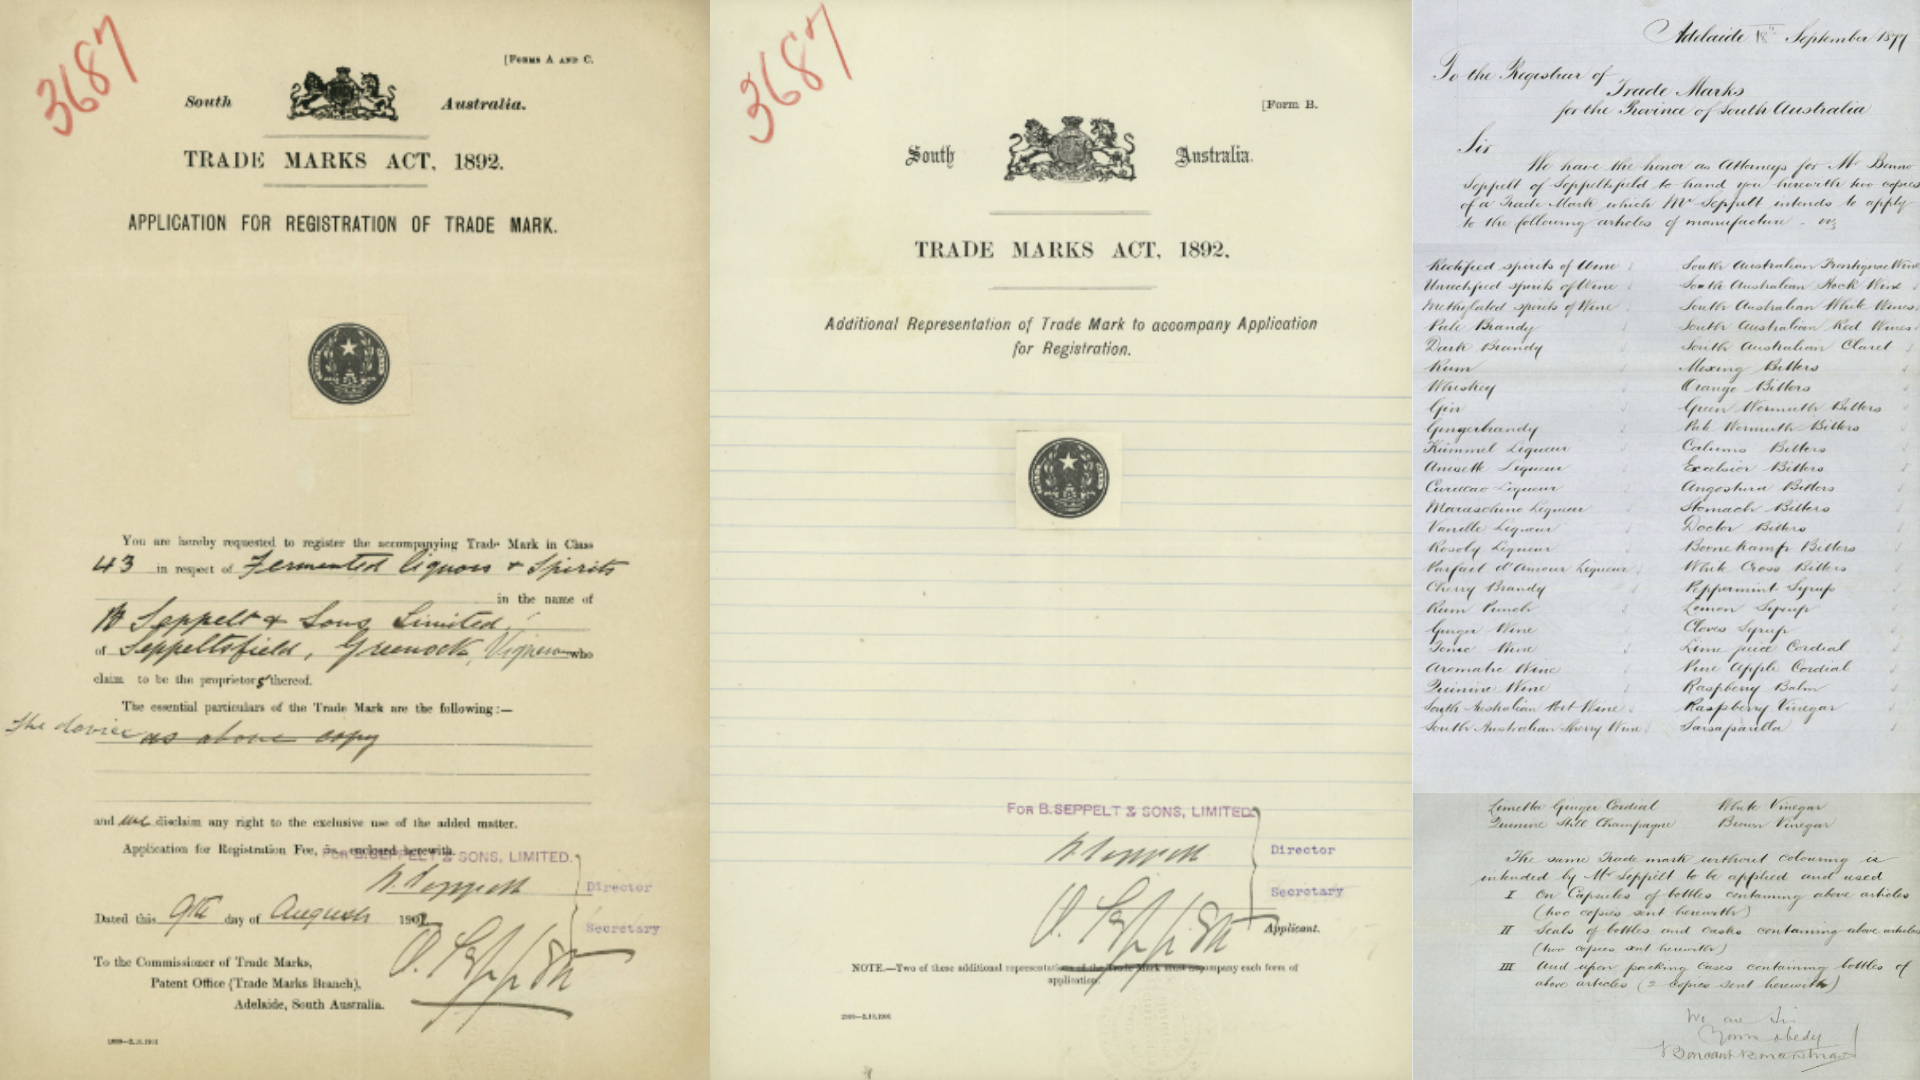 3687
[FORMS A AND C.
South Australia.
TRADE MARKS ACT, 1892.
APPLICATION FOR REGISTRATION OF TRADE MARK.
You are hereby requested to register the accompanying Trade Mark in Class
43 in respect of Fermented liquors & Spirits
in the name of
B Seppelt & Sons Limited
of Seppeltsfield, Greenock, Vignerons who
claim to be the proprietors thereof.
The essential particulars of the Trade Mark are the following:—
The device as above copy
and we disclaim any right to the exclusive use of the added matter.
Application for Registration Fee, is enclosed herewith.
FOR B.SEPPELT & SONS, LIMITED.
B. Seppelt
Director
Dated this 9th day of August 1902
Secretary
O. Seppelt
To the Commissioner of Trade Marks,
Patent Office (Trade Marks Branch),
Adelaide, South Australia.
3687
[FORM B.
South Australia.
TRADE MARKS ACT, 1892.
Additional Representation of Trade Mark to accompany Application
for Registration.
FOR B.SEPPELT & SONS, LIMITED.
B Seppelt
Director
Secretary
O. Seppelt
Applicant.
NOTE.—Two of these additional representations of the Trade Mark must accompany each form of
application.
Adelaide 18th September 1877
To the Registrar of
Trade Marks
for the Province of South Australia
Sir
We have the honor as Attorneys for Mr Benno
Seppelt of Seppeltsfield to hand you herewith two copies
of a Trade Mark which Mr Seppelt intends to apply
to the following articles of manufacture - viz
Rectified spirits of Wine South Australian Frontignac Wine
Unrectified spirits of Wine South Australian Hock Wine
Methylated spirits of Wine South Australian White Wines
Pale Brandy South Australian Red Wines
Dark Brandy South Australian Claret
Rum Mixing Bitters
Whiskey Orange Bitters
Gin Green Wermuth Bitters
Gingerbrandy Pale Wermuth Bitters
Kümmel Liqueur Calamus Bitters
Anisette Liqueur Excelsior Bitters
Curacao Liqueur Angostura Bitters
Maraschino Liqueur Stomach Bitters
Vanille Liqueur Doctor Bitters
Rosoly Liqueur Boonekamp Bitters
Parfait d'Amour Liqueur White Cross Bitters
Cherry Brandy Peppermint Syrup
Rum Punch Lemon Syrup
Ginger Wine Cloves Syrup
Tonic Wine Lime juice Cordial
Aromatic Wine Pine Apple Cordial
Quinine Wine Raspberry Balm
South Australian Port Wine Raspberry Vinegar
South Australian Sherry Wine Sarsaparilla
Lemetta Ginger Cordial White Vinegar
Quinine Still Champagne Brown Vinegar
The same Trade mark without colouring is
intended by Mr Seppelt to be applied and used
I On Capsules of bottles containing above articles
(two copies sent herewith)
II Seals of bottles and casks containing above articles
(two copies sent herewith)
III And upon packing cases containing bottles of
above articles (2 copies sent herewith)
We are Sir
Yours obedy